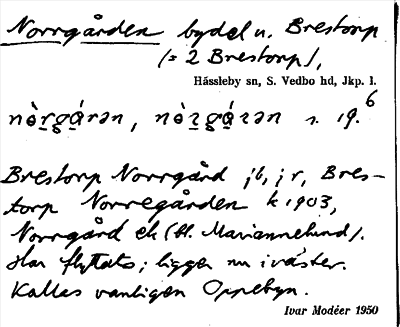 Norrgården bydel u. Brestorp
(= 2 Brestorp),
Hässleby sn, S. Vedbo hd, Jkp. l.
nòrgá̤rən, nòrgá̤rən s. 19.6
Brestorp Norrgård jb, jr, Bres-
torp Norregården k 1903,
Norrgård ek (bl. Mariannelund).
Har flyttats; ligger nu i väster.
Kallas vanligen Oppebyn.
Ivar Modéer 1950